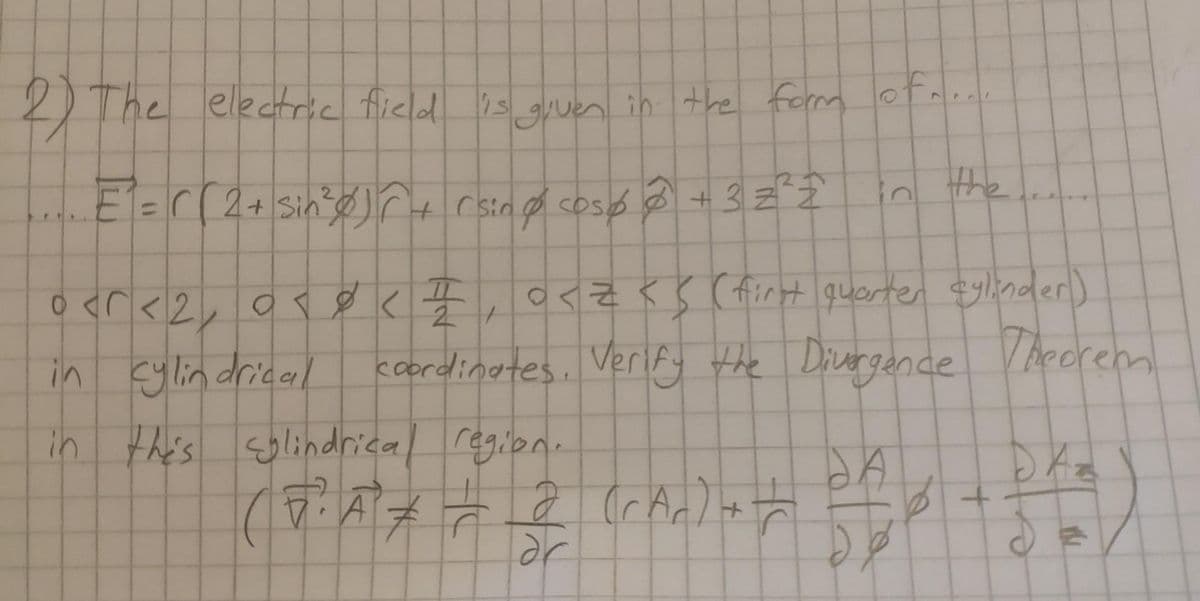 2) The electric field is given in the form of....
.... E⃗ = r(2+ sin²φ) r̂ + r sin φ cosφ φ̂ + 3z² ẑ in the .....
0<r<2, 0<φ<π/2, 0<z<5 (first quarter cylinder)
in cylindrical coordinates. Verify the Divergence Theorem
in this cylindrical region.
(∇⃗. A⃗ ≠ 1/r ∂/∂r (rAr) + 1/r ∂Aφ/∂φ + ∂Az/∂z)